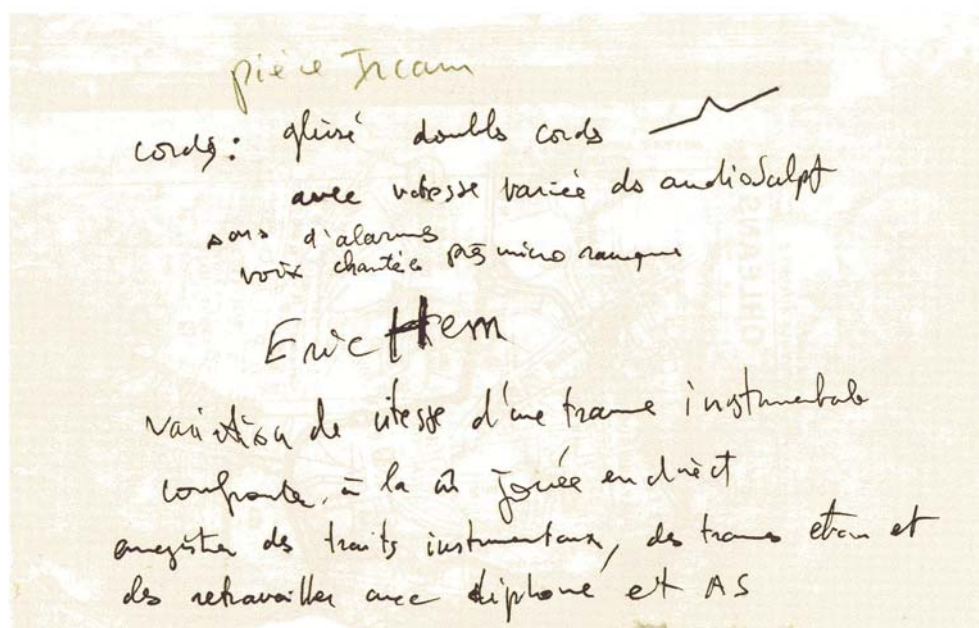 pièce Ircam
cordes : glissé doubles cordes
avec vitesse variée ds audioSculpt
sons d'alarmes
voix chantée près micro rauque
Eric Hem
variation de vitesse d'une trame instrumentale
confrontée à la m̂ jouée en direct
enregistrer des traits instrumentaux, des trames et
des retravailler avec diphone et AS